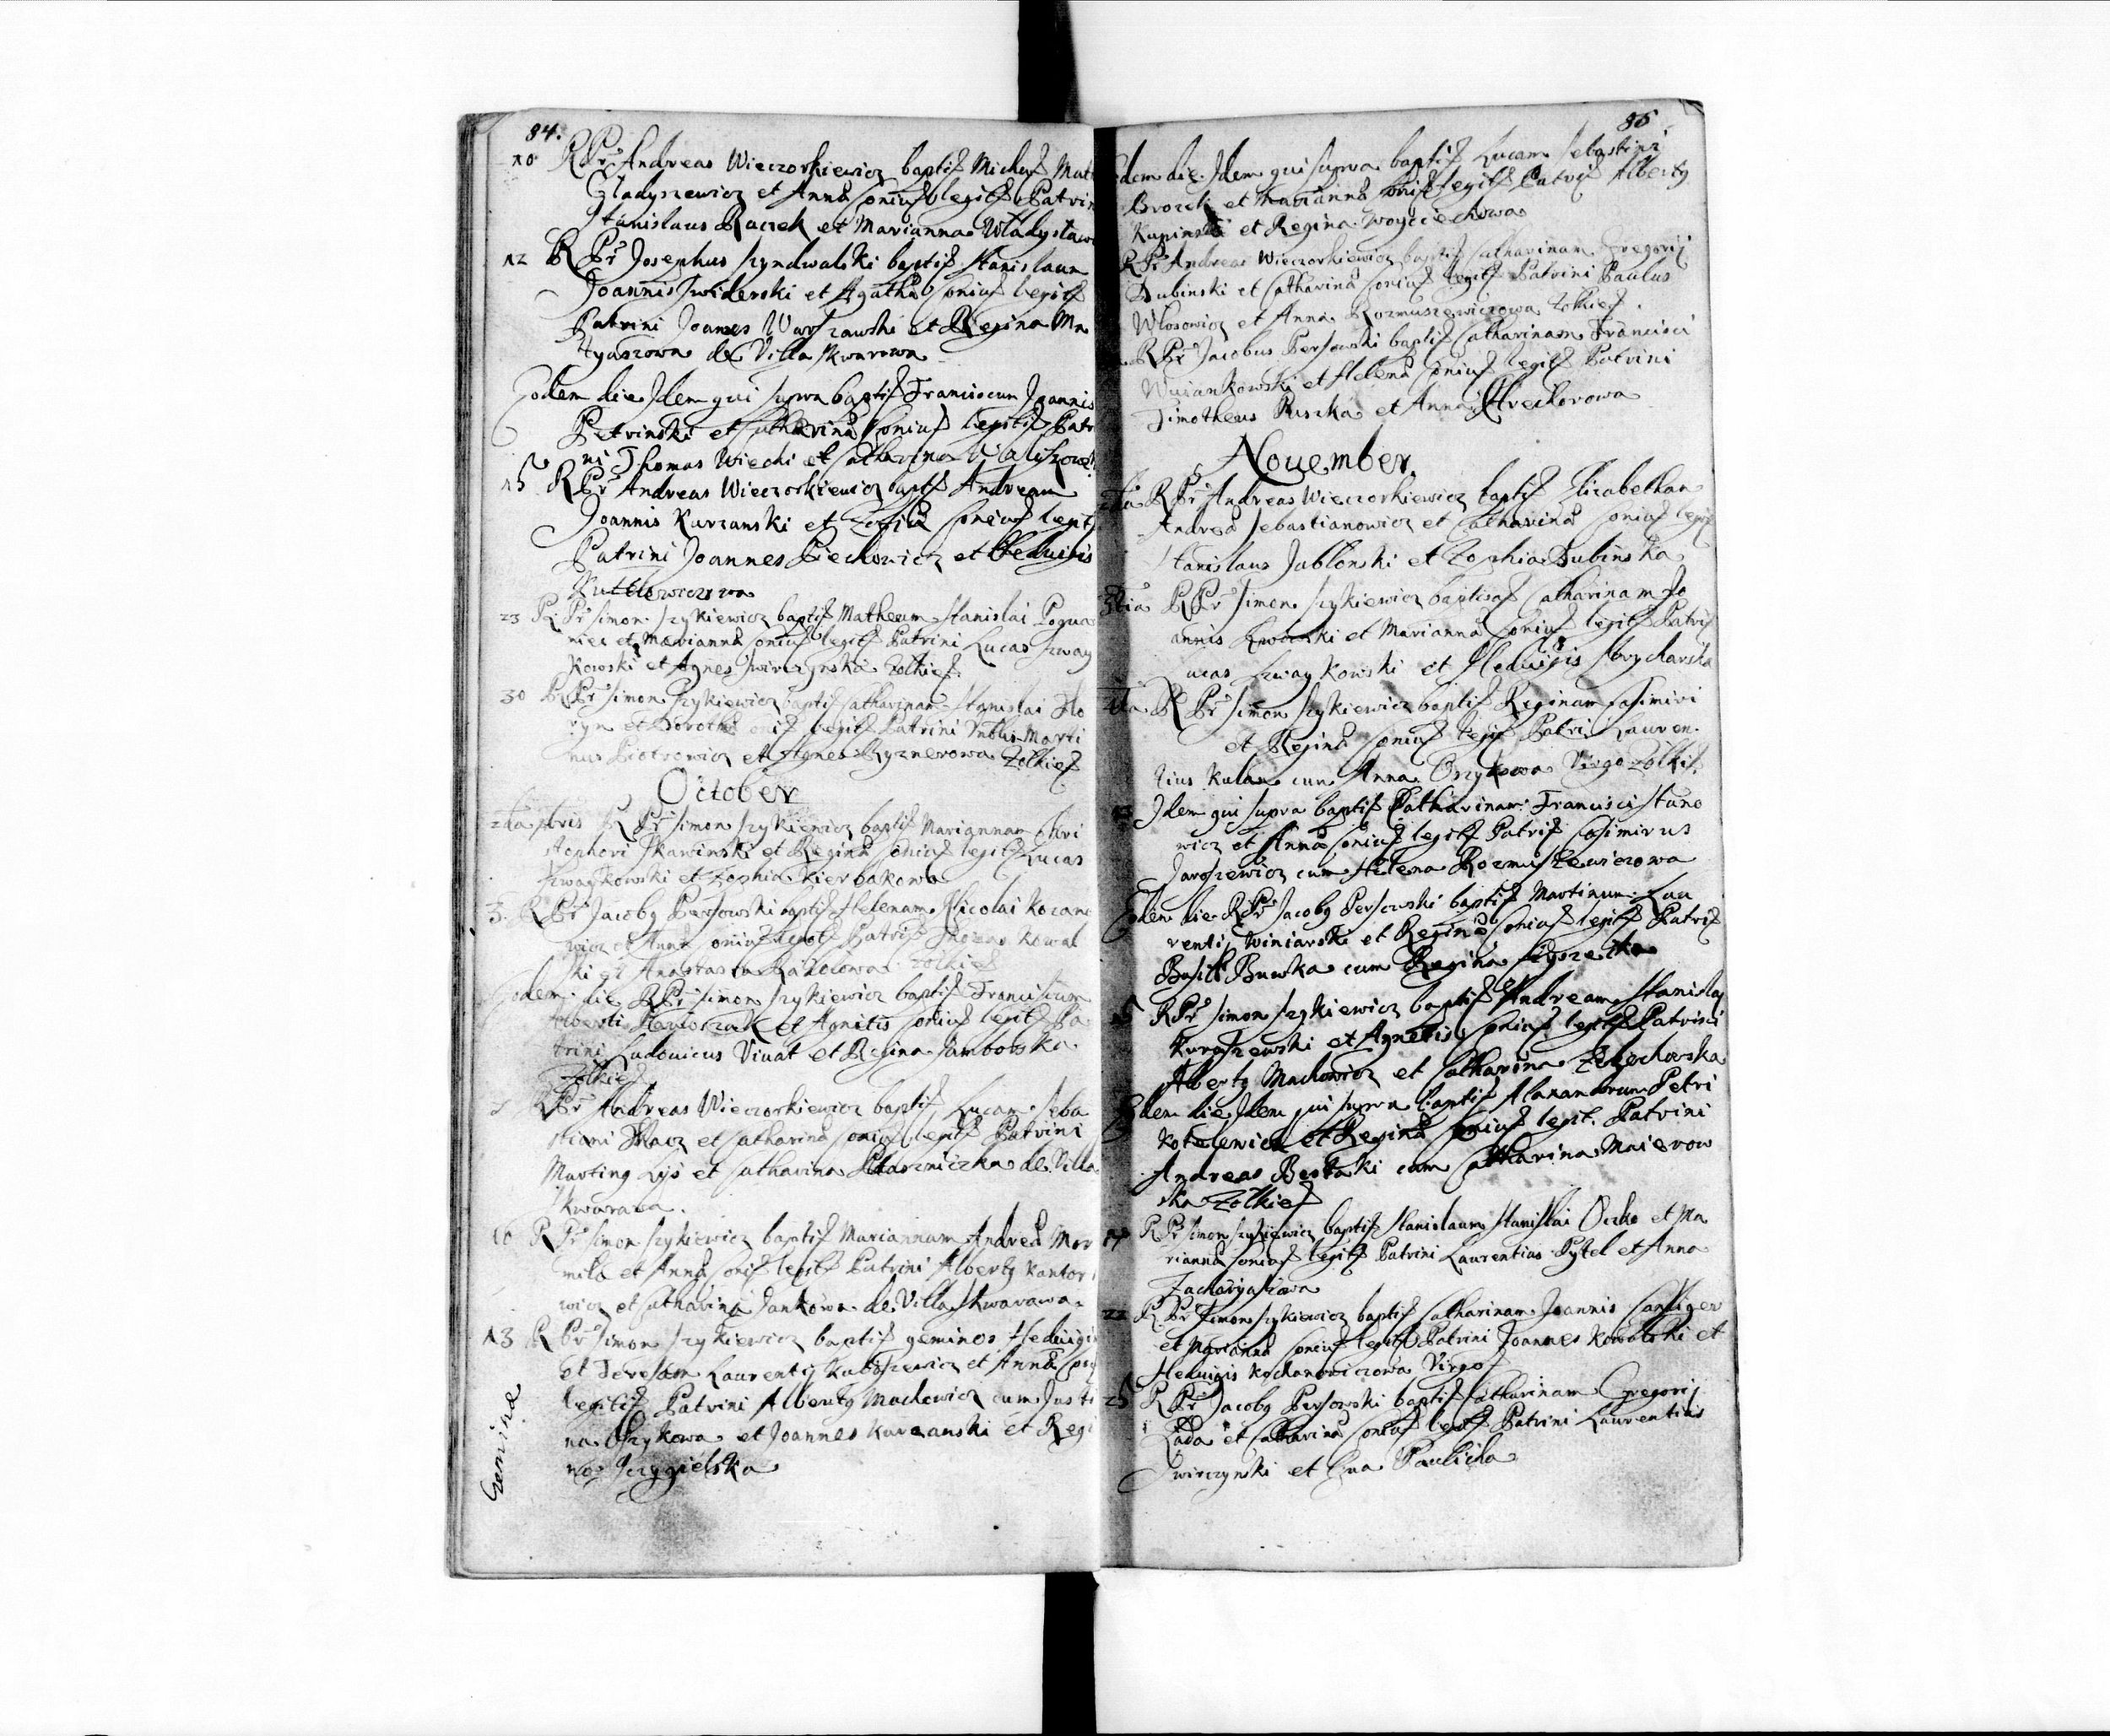 84.
10 R Pr Andreas Wieczorkiewicz baptis Mich
Gladyszewicz et Anna coniug legit Patrin
Stanislaus Raczek et Marianna Wladyslaw
12 R Pr Josephus Szyndwalski baptis Stanislaum
Joannis Swiderski et Agatha Coniug legit
Patrini Joannes Warszawski et Regina Ma
tyaszowa de Villa Skwarowa
Eodem die Idem qui supra baptis Franciscum Joannis
Petrinski et Catharina Coniug legitis Patri
ni Thomas Wiechi et Catharina
15 R Pr Andreas Wieczorkiewicz baptis Andream
Joannis Kurzanski et Zofia Coniug legit
Patrini Joannes Piechowicz et Heduigis
23 R Pr Simon Szykiewicz baptis Matheum Stanislai
et Marianna coniug legit Patrini Lucas Szway
kowski et Agnes Swirczynska Zolkief
30 R Pr Simon Szykiewicz baptis Catharinam Stanislai
et Dorothea legit Patrini Marti
nus Piotrowicz et Agnes Ryznerowa Zolkief
October
2da R Pr Simon Szykiewicz baptis Mariannam Chri
stophori Skawinski et Regina coniug legit Lucas
Szwaykowski et Zophia Kierbakowa
3. R Pr Jacobg Persowski baptis Helenam Nicolai
et Anna coniug legit Patri Thomas Kowal
ski et Anastasia Zolkief
Eodem die R Pr Simon Szykiewicz baptis Franciscum
Alberti et Agnetis coniug legit Pa
trini Ludouicus Viuat et Regina Jamborska
Zolkief
R Pr Andreas Wieczorkiewicz baptis Lucam Seba
stiani et Catharina coniug legit Patrini
Marting Lys et Catharina Ptaszniczka de Villa
Skwarawa.
10 R Pr Simon Szykiewicz baptis Mariannam Andrea
et Anna coniu legit Patrini Albertg Kantor
wicz et Catharina Jankowa de Villa Skwarawa.
13 R Pr Simon Szykiewicz baptis geminos Heduigi
et Teresam Laurentij et Anna coniu
legitis Patrini Albertg Machowicz cum Justi
na Ozykowa et Joannes Kurzanski et Regi
na Szczygielska
Geminae
85
Eodem die Idem qui supra baptis Lucam Sebastiani
Brozek et Marianna coniu legit Patris Albertg
Kupinski et Regina Woyciechowa
R Pr Andreas Wieczorkiewicz baptis Catharinam Gregorij
Dubinski et Catharina Coniug legit Patrini Paulus
Wlosowicz et Anna Rozmuszewiczowa Zolkief.
R Pr Jacobus Persowski baptis Catharinam Francisci
et Helena Coniug legit Patrini
Timotheus Puszka et Anna
November.
R Pr Andreas Wieczorkiewicz baptis Elizabetham
Andrea Sebastianowicz et Catharina Coniug legit
Stanislaus Jablonski et Zophia Dubinska
3tia R Pr Simon Szykiewicz baptisas Catharinam Jo
annis et Marianna Coniug legit Patri
ucas Szwaykowski et Heduigis
R Pr Simon Szykiewicz baptis Reginam Casimiri
et Regina Coniug legit Patri Lauren
tius Kulan cum Anna Ozykowa Virgo Zolkif.
Idem qui supra baptis Catharinam Francisci Stano
wicz et Anna Coniug legit Patris Casimirus
Jaroszewicz cum Helena Rozmuszewiczowa
Eodem die R Pr Jacobg Persowski baptis Martinum Lau
rentij Winiarski et Regina Coniug legit Patri
Basili cum Regina
15 R Pr Simon Szykiewicz baptis Andream Stanislaj
et Agnetis Coniug legit Patrini
Albertg Machowicz et Catharina
Eodem die Idem qui supra baptis Petri
Kotelewicz et Regina Coniug legit. Patrini
Andreas cum Catharina Maierow
ska Zolkief
R Pr Simon Szykiewicz baptis Stanislaum Stanislai Oczko et Ma
rianna Coniug legit Patrini Laurentius Pytel et Anna
22 R Pr Simon Szykiewicz baptis Catharinam Joannis
et Marianna Coniug legit Patrini Joannes Kowalski et
Heduigis Kochanowiczowa Virgo
25 R Pr Jacobg Persowski baptis Catharinam Gregorij
Lada et Catharina Coniug legit Patrini Laurentius
Swirczynski et Eua Paulicha